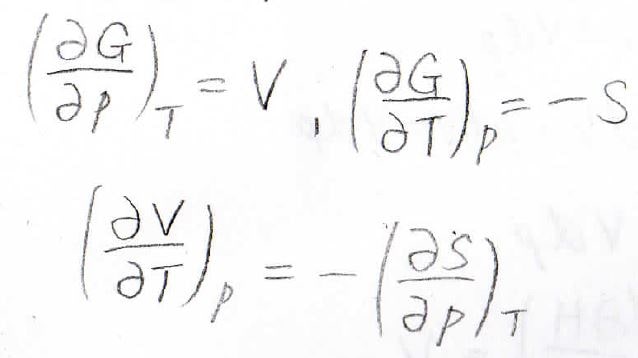 (∂G/∂p)_T = V, (∂G/∂T)_p = −S
(∂V/∂T)_p = −(∂S/∂p)_T